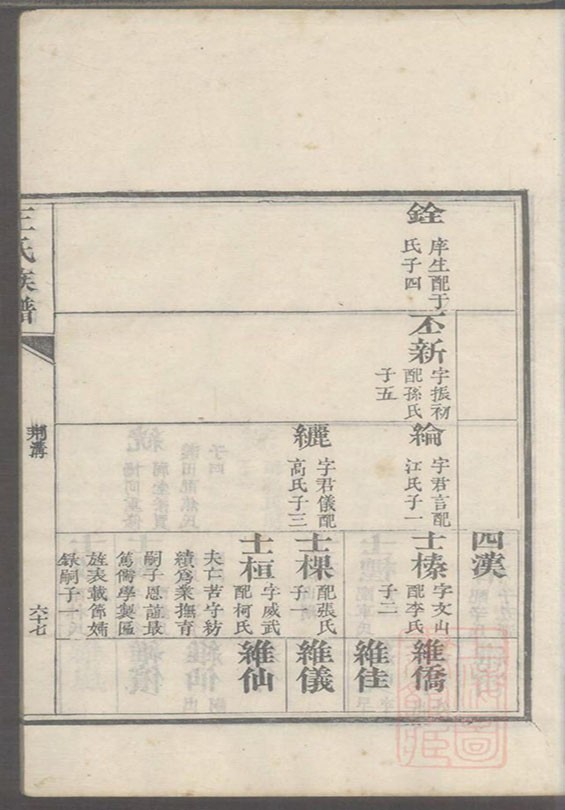 銓
庠生配于
氏子四
丕新
字振初
配孫氏
子五
綸
字君言配
江氏子一
纚
字君儀配
高氏子三
四漢
士榛
字文山
配李氏
子二
士棵
配張氏
子一
士桓
字威武
配柯氏
夫亡苦守紡
績為業撫育
嗣子恩誼最
篤儒學製匾
旌表載節婦
錄嗣子一
維僑
維佳
維儀
維仙
王氏族譜
荆溝
六十七